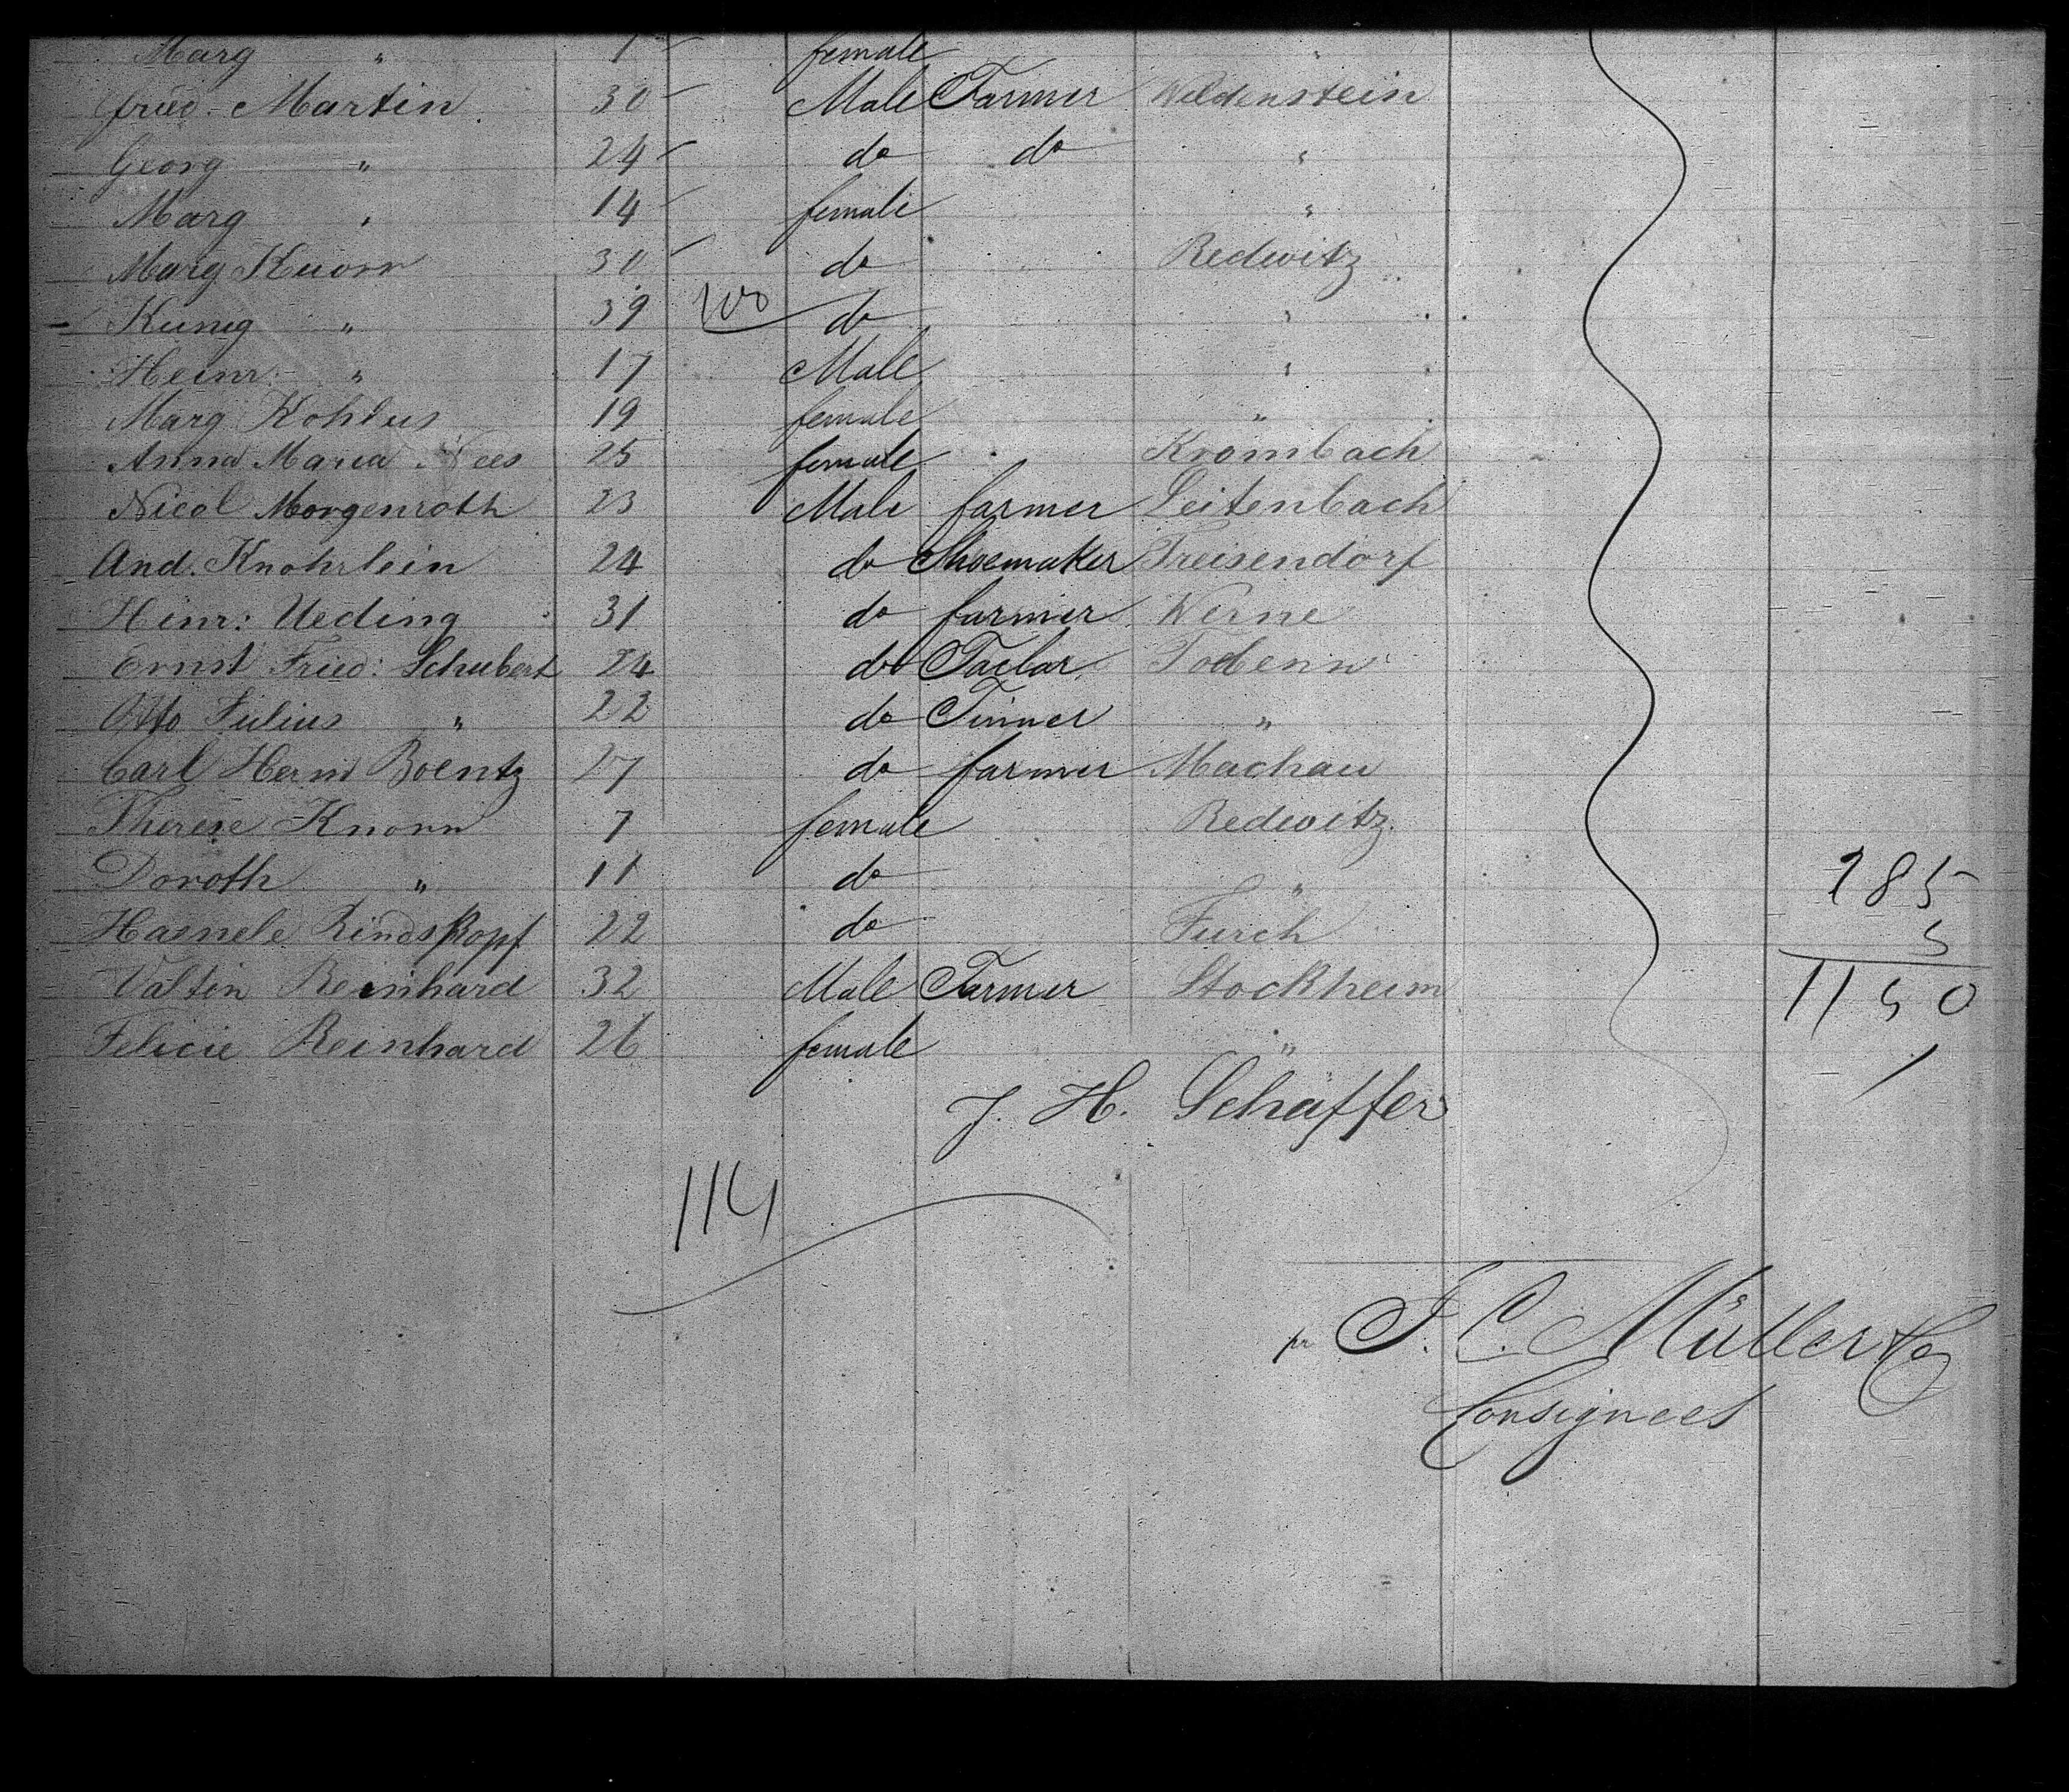 Marg " 1 female "
Fried. Martin 30 Male Farmer Wildenstein
Georg " 24 do do "
Marg " 14 female "
Marg Knorr 30 do Redwitz
Kunig " 39 100 do "
Heinr: " 17 Male "
Marg Kohles 19 female "
Anna Maria Nees 25 female Krombach
Nicol Morgenroth 23 Male farmer Leitenbach
And. Knohrlein 24 do Shoemaker Treisendorf
Hinr: Ueding 31 do farmer Werne
Ernst Fried: Schubert 24 do Taelar
Otto Julius " 22 do Tinner "
Carl Herm Boentz 27 do farmer Machau
Therese Knorr 7 female Redwitz
Doroth " 11 do "
Rindskopf 22 do Furch
Valtin Reinhard 32 Male Farmer Stockheim
Felicie Reinhard 26 female "
J. H. Schäffer
114
185
5
1150
pr J. C. Müller & Co
Consignees